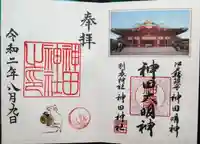 江戸総鎮守 神田明神
神田大明神
別表神社 神田神社
奉拝
神田神社之印
令和二年八月九日